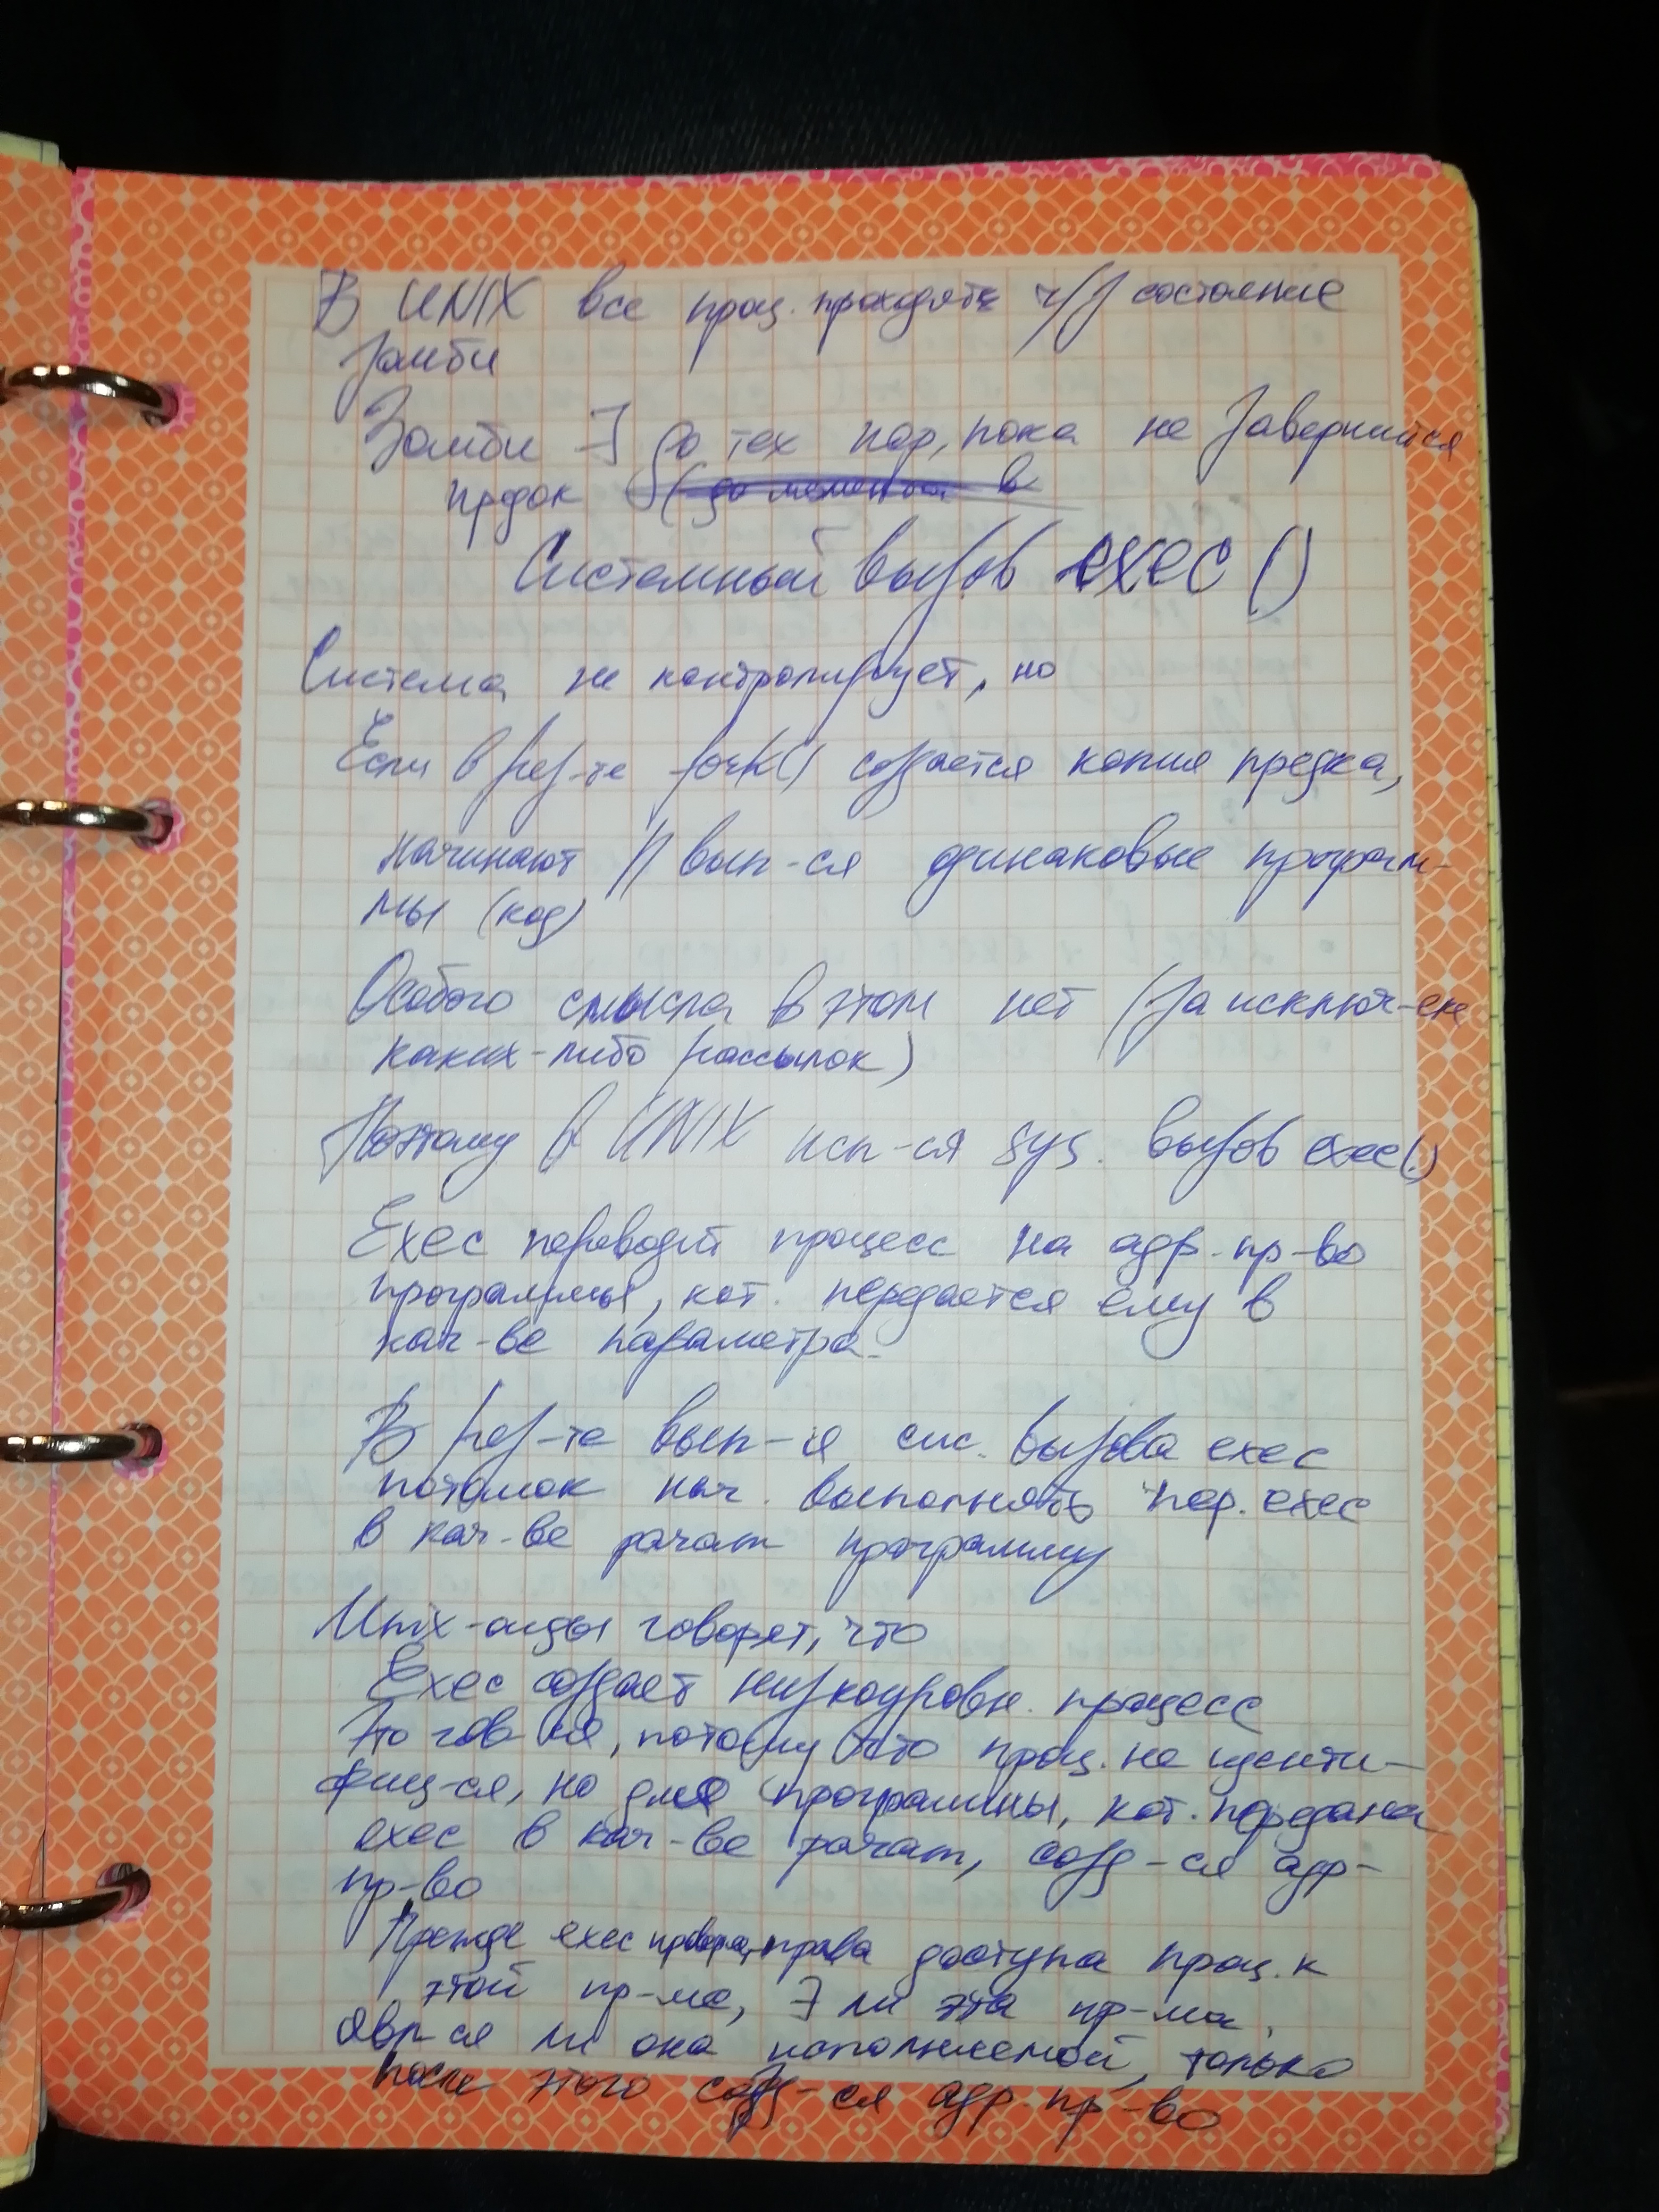 В UNIX все проц. проходят ч/з состояние
зомби
Зомби ∃ до тех пор, пока не завершится
прдок (до момента в
Системный вызов exec ()
Система не контролирует, но
Если в рез-те fork() создается копия предка,
начинают || вып-ся одинаковые програм-
мы (код)
Особого смысла в этом нет (за исключ-ем
каких-либо рассылок)
Поэтому в UNIX исп-ся sys. вызов exec()
Exec переводит процесс на адр. пр-во
программы, кот. передается ему в
кач-ве параметра.
В рез-те вып-я сис. вызова exec
потомок нач. выполнять пер. exec
в кач-ве парам программу
Unix-оиды говорят, что
Exec создает низкоуровн. процесс
Это гов-ся, потому что проц. не иденти-
фиц-ся, но для программы, кот. передана
exec в кач-ве парам, созд-ся адр-
пр-во
Прежде exec права доступа проц. к
этой пр-ме, ∃ ли эта пр-ма,
явл-ся ли она исполняемой, только
после этого созд-ся адр. пр-во